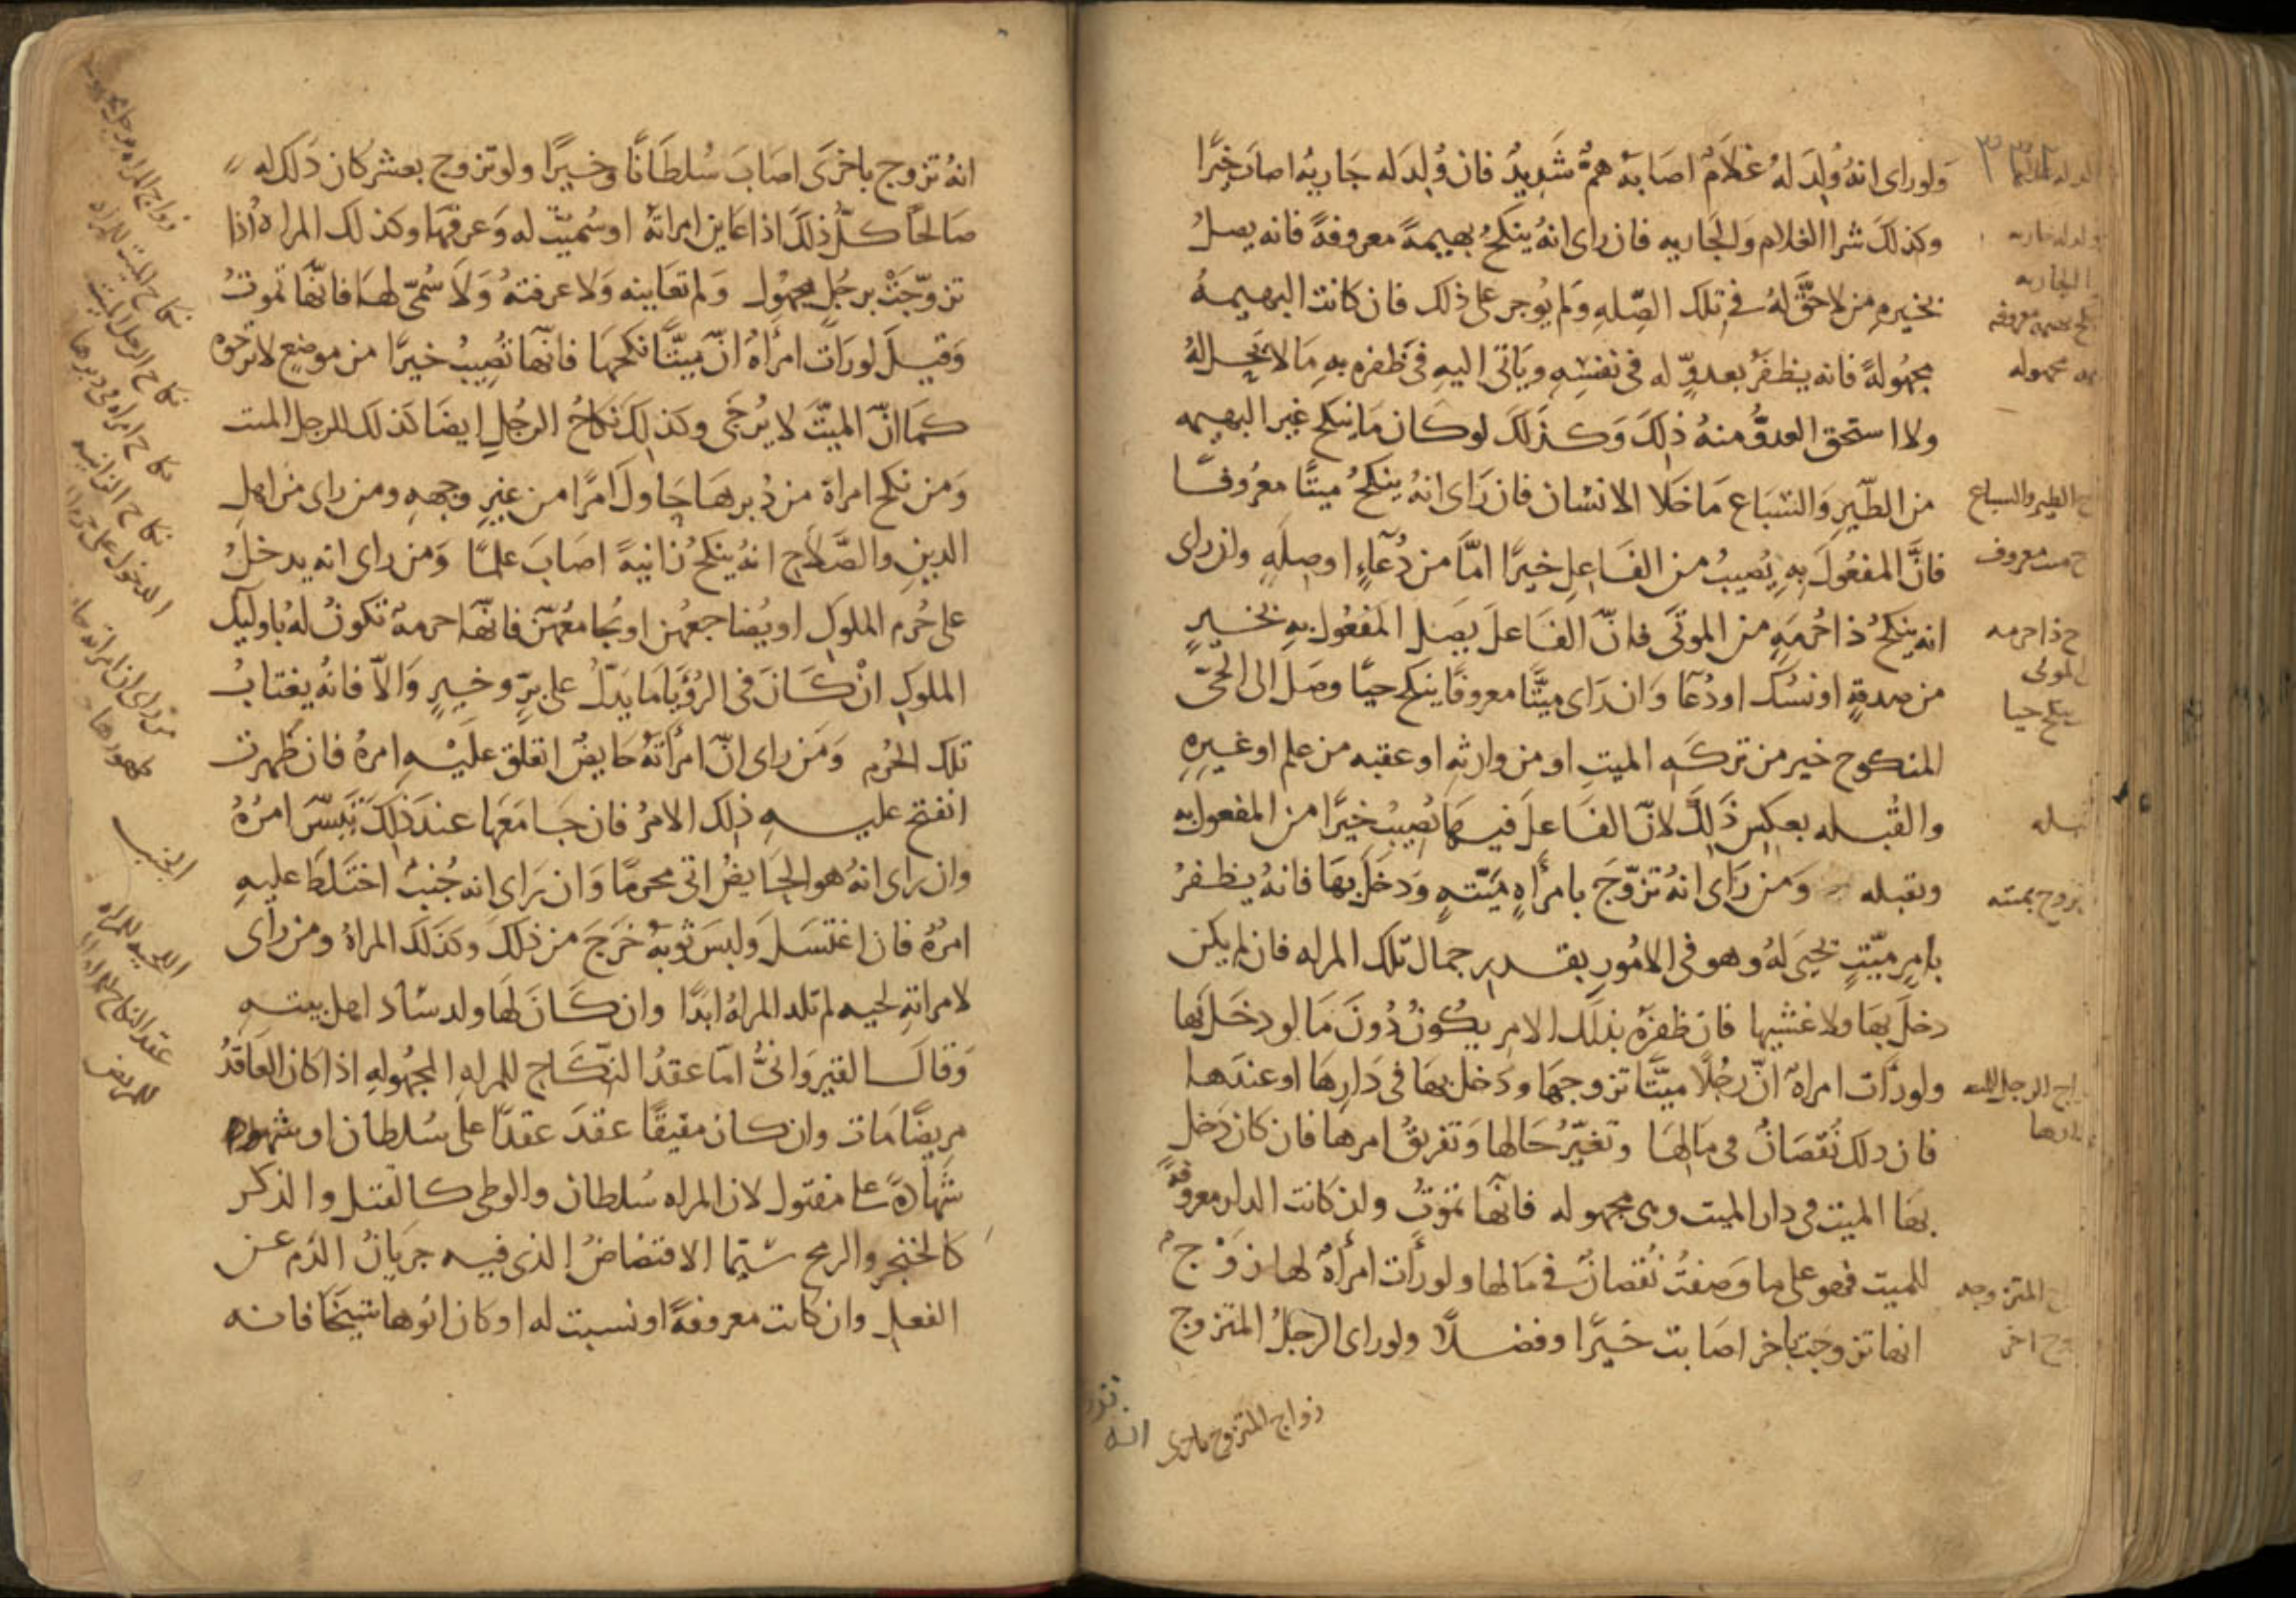 ولوراى انهُ وُلِدَ لهُ غلامٌ اصَابَهُ همٌّ شَدِيدٌ فان وُلِدَ له جَاريهٌ اصابَ خيرًا
وكذلكَ شرا الغلام وَالجَاريه فان راى انهُ ينكحُ بهيمهً معروفةً فانه يصلُ
بخيره من لا حقَّ لهُ في تلك الصِّلهِ ولم يُوجر على ذلك فان كانت البهيمهُ
مجهُولهً فانه يظفَرُ بعدوٍّ له فى نفسِهِ ويَاتى اليهِ فى ظَفره بهِ مَا لا يَحِلّ لهُ
ولا استحق العدوُّ منهُ ذلِكَ وَكذلكَ لو كان مَا ينكح غير البهيمه
من الطَّيرِ وَالسّبَاع مَا خَلا الانسَان فان رَاى انهُ ينكحُ ميتًا معرُوفًا
فانَّ المفعُولَ بِهِ يُصِيبُ من الفَاعِلِ خيرًا امَّا من دُعَآءٍ او صِلَهٍ وان راى
انه ينكحُ ذا حُرْمَهٍ من الموتَى فانّ الفَاعلَ يَصِلُ المفعُول بهِ بخَيرٍ
من صدقةٍ او نسُك او دُعآ وَان رَاى ميّتًا معروفًا ينكح حيًّا وصَل الى الحَيّ
المنكوح خير من تركهِ الميتِ او من وارثهِ او عقبه من علم او غيرِهِ
والقُبله بعكسِ ذَلِكَ لانّ الفَاعلَ فيهَا يُصِيبُ خيرًا من المفعول بهِ
وبقبله وَمن رَاى انهُ تزوَّجَ بامرأهٍ ميّتهٍ وَدخَلَ بهَا فانهُ يظفرُ
بامرٍ ميّتٍ يحيَى لهُ وهو فى الامُورِ بقدرِ جمال تلك المراه فان لم يكن
دخلَ بهَا ولا غشيها فان ظفرَهُ بذلكَ الامرِ يكُونُ دُونَ مَا لو دخَلَ بهَا
ولو رَأَت امراهٌ انّ رجُلًا ميتًا تزوجهَا ودَخل بهَا فى دَارِهَا او عندهَا
فان ذلك نُقصَانٌ فى مَالِهَا وتغيّرُ حَالهَا وَتفريقُ امرهَا فان كان دَخل
بهَا الميت فى دار الميت وهى مجهوله فانّهَا تمُوتُ وان كانت الدار معروفةً
للميت فهو على ما وصَفتُ نُقصانٌ فى مَالها ولو رأَت امرأهٌ لها زَوْج
انها تزوجت باخر اصَابت خيرًا وفضلًا ولوراى الرجلُ المتزوج
زواج المتزوج باخرى
انه
نكح بهيمه معروفه
مجهوله
الطير والسباع
ميت معروف
ذا حرمه
ينكح حيا
المتزوجه
انهُ تزوج باخرَى اصَابَ سُلطَانًا وخيرًا ولو تزوج بعشر كان ذلك له
صَالحًا كلُّ ذلكَ اذا عَاين امراتهُ او سُمّيَت له وَعرفهَا وكذلك المراه اذا
تزوّجَتْ برجُلٍ مجهُول ولم تعَاينه وَلا عرفتهُ وَلا سُمّى لهَا فانّهَا تَموتُ
وَقيلَ لو رَات امرأَهٌ انّ ميتًا نكحهَا فانّهَا تُصِيبُ خيرًا من موضِعٍ لا ترجُوه
كمَا انّ الميّتَ لا يُرجَى وكذلكَ نكاحُ الرجُلِ ايضا كذلك للرجل الميت
وَمن نكح امراهً من دُبرهَا حَاولَ امرًا من غيرِ وجههِ ومن راى من اهلِ
الدينِ والصَّلاح انهُ ينكحُ زانيةً اصَابَ علمًا وَمن راى انه يدخلُ
على حُرَم الملوك او يُضاجعهُن او يُجَامعهُنّ فانّهَا حرمهٌ تكونُ لهُ باوليك
الملوكِ انْ كَانَ فى الرُؤيَا مَا يدُلّ على برٍّ وخيرٍ وَالّا فانهُ يغتابُ
تلك الحُرم وَمَن راى انّ امرأتَهُ حَايضٌ انغلق عَليْهِ امرهُ فان طَهرت
انفتح عليهِ ذلِك الامرُ فان جَامَعهَا عندَ ذلِكَ تيَسّرَ امرُهُ
وان راى انهُ هو الحَايضُ اتى محرمًا وَان رَاى انه جُنبٌ اختَلطَ عليهِ
امرُهُ فان اغتسَلَ وَلبسَ ثوبَهُ خَرَجَ من ذلكَ وكذلكَ المراهُ ومن راى
لامراتهِ لحيه لم تلد المراهُ ابدًا وان كَانَ لها ولد سَاد اهل بيتهِ
وَقالَ القيرَوانىُّ امّا عقدُ النّكَاحِ للمراهِ المجهُولهِ اذا كان العَاقدُ
مريضًا مَات وان كان مفيقًا عقدَ عقدًا على سُلطان او شهد
شهَادةً على مقتول لان المراه سُلطان والوطى كالقتل والذكر
كالخنجر والرمح سيّما الافتضاضُ الذى فيه جريَانُ الدَم عن
الفعل وان كانت معروفةً او نسبت له او كان ابوها شيخًا فانه
نكاح الميت للمراه
نكاح الرجل الميت
نكاح امراه فى دبرها
نكاح الزانيه
من راى ان امراته حايض
طهورها
الجنب
اللحيه للمراه
للمريض